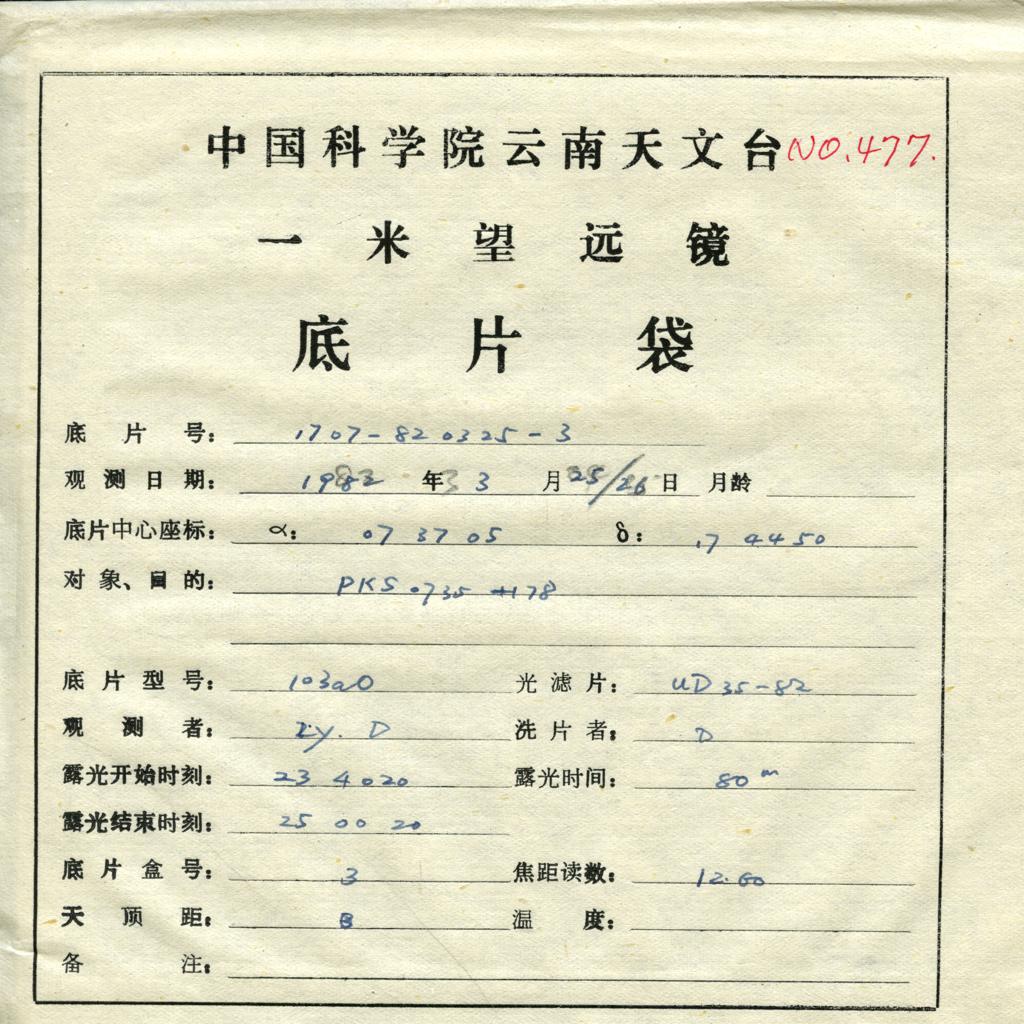 中国科学院云南天文台 NO.477.
一米望远镜
底片袋
底片号: 1707-820325-3
观测日期: 1982 年 3 月 25/26 日 月龄
底片中心座标: α: 07 37 05 δ: 17 44 50
对象、目的: PKS 0735 +178
底片型号: 103aO 光滤片: UD 35-82
观测者: Z.y. D 洗片者: D
露光开始时刻: 23 40 20 露光时间: 80m
露光结束时刻: 25 00 20
底片盒号: 3 焦距读数: 12.60
天顶距: 温度:
备注: